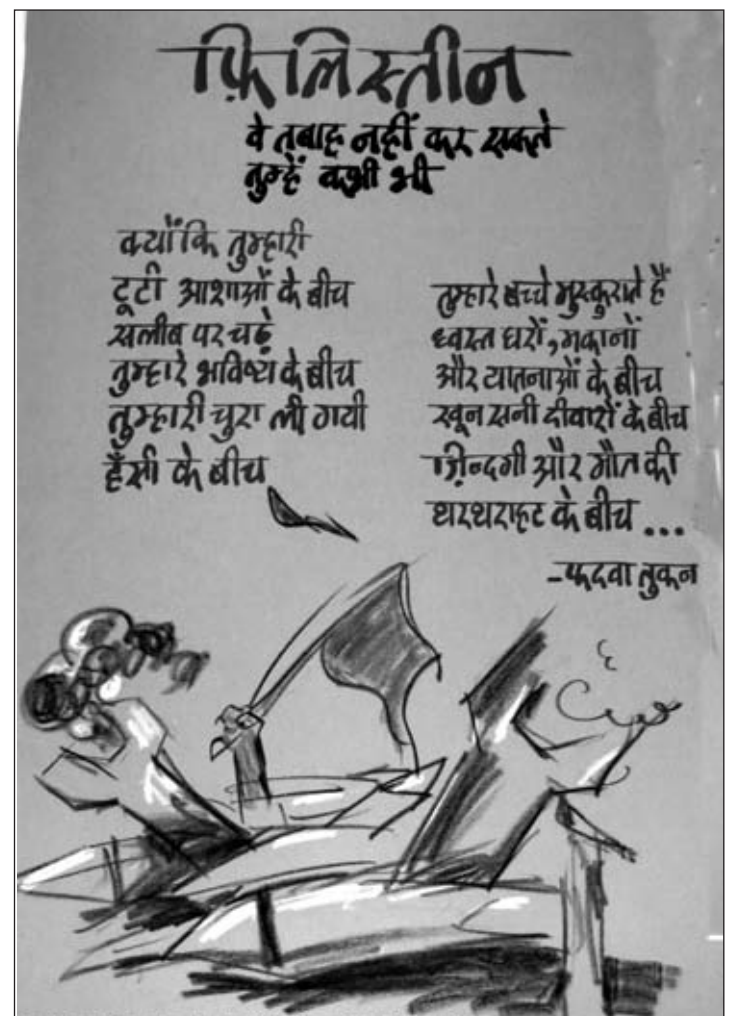 फ़िलिस्तीन
वे तबाह नहीं कर सकते
तुम्हें कभी भी
क्योंकि तुम्हारी
टूटी आशाओं के बीच
सलीब पर चढ़े
तुम्हारे भविष्य के बीच
तुम्हारी चुरा ली गयी
हँसी के बीच
तुम्हारे बच्चे मुस्कुराते हैं
ध्वस्त घरों, मकानों
और यातनाओं के बीच
खून सनी दीवारों के बीच
ज़िन्दगी और मौत की
थरथराहट के बीच ...
-फदवा तुकन